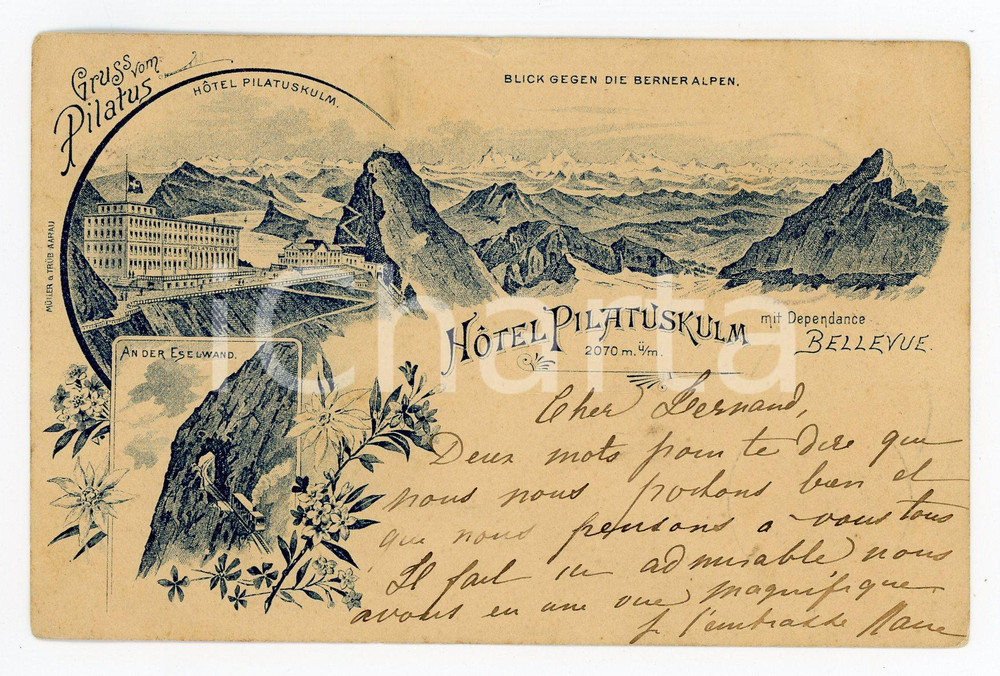 Gruss vom
Pilatus
HÔTEL PILATUSKULM.
BLICK GEGEN DIE BERNER ALPEN.
MÜLLER & TRÜB AARAU
iCharta
HÔTEL PILATUSKULM
2070 m. ü/m.
mit Dependance
BELLEVUE.
AN DER ESELWAND.
Cher Fernand,
Deux mots pour te dire que
nous nous portons bien et
que nous pensons a vous tous
Il fait ici admirable nous
avons eu une vue magnifique
je t'embrasse